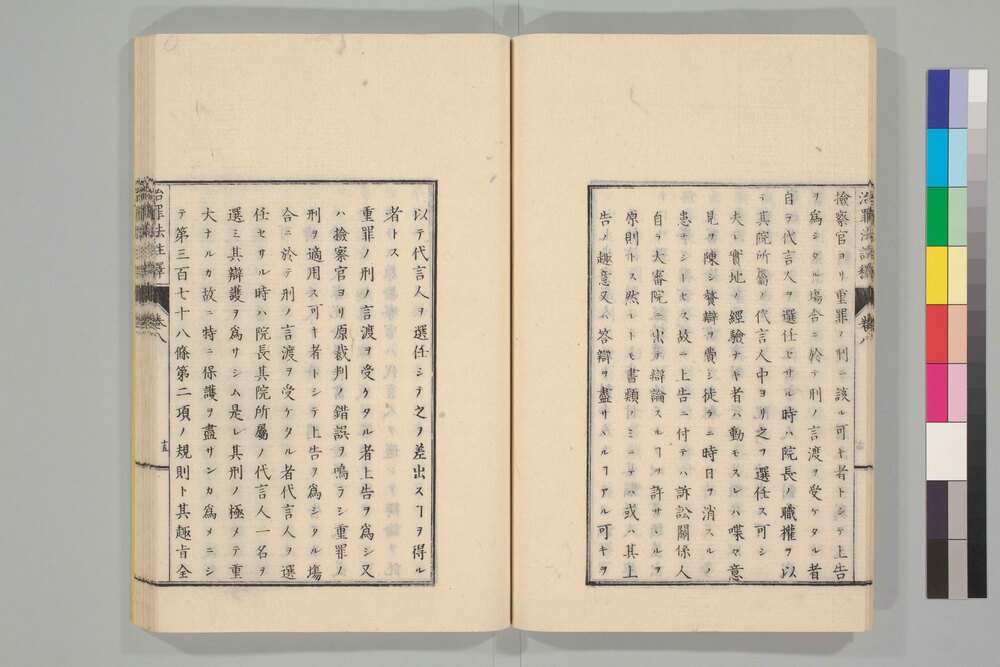 治罪法註釋 卷八
檢察官ヨリ重罪ノ刑ニ該ル可キ者トシテ上告
ヲ爲シタル塲合ニ於テ刑ノ言渡ヲ受ケタル者
自ラ代言人ヲ選任セサル時ハ院長ノ職權ヲ以
テ其院所屬ノ代言人中ヨリ之ヲ選任ス可シ
夫レ實地ノ經驗ナキ者ハ動モスレハ喋々意
見ヲ陳シ贅辯ヲ費シ徒ラニ時日ヲ消スルノ
患ナシトセス故ニ上告ニ付テハ訴訟關係人
自ラ大審院ニ出テ辯論スルヿヲ許サヽルヲ
原則トス然レトモ書類ノミニテハ或ハ其上
告ノ趣意又ハ答辯ヲ盡サヽルヿアル可キヲ
以テ代言人ヲ選任シテ之ヲ差出スヿヲ得ル
者トス
重罪ノ刑ノ言渡ヲ受ケタル者上告ヲ爲シ又
ハ檢察官ヨリ原裁判ノ錯誤ヲ鳴ラシ重罪ノ
刑ヲ適用ス可キ者トシテ上告ヲ爲シタル塲
合ニ於テ刑ノ言渡ヲ受ケタル者代言人ヲ選
任セサル時ハ院長其院所屬ノ代言人一名ヲ
選ミ其辯護ヲ爲サシム是レ其刑ノ極メテ重
大ナルカ故ニ特ニ保護ヲ盡サンカ爲メニシ
テ第三百七十八條第二項ノ規則ト其趣旨全
治罪法註釋 卷八
十五